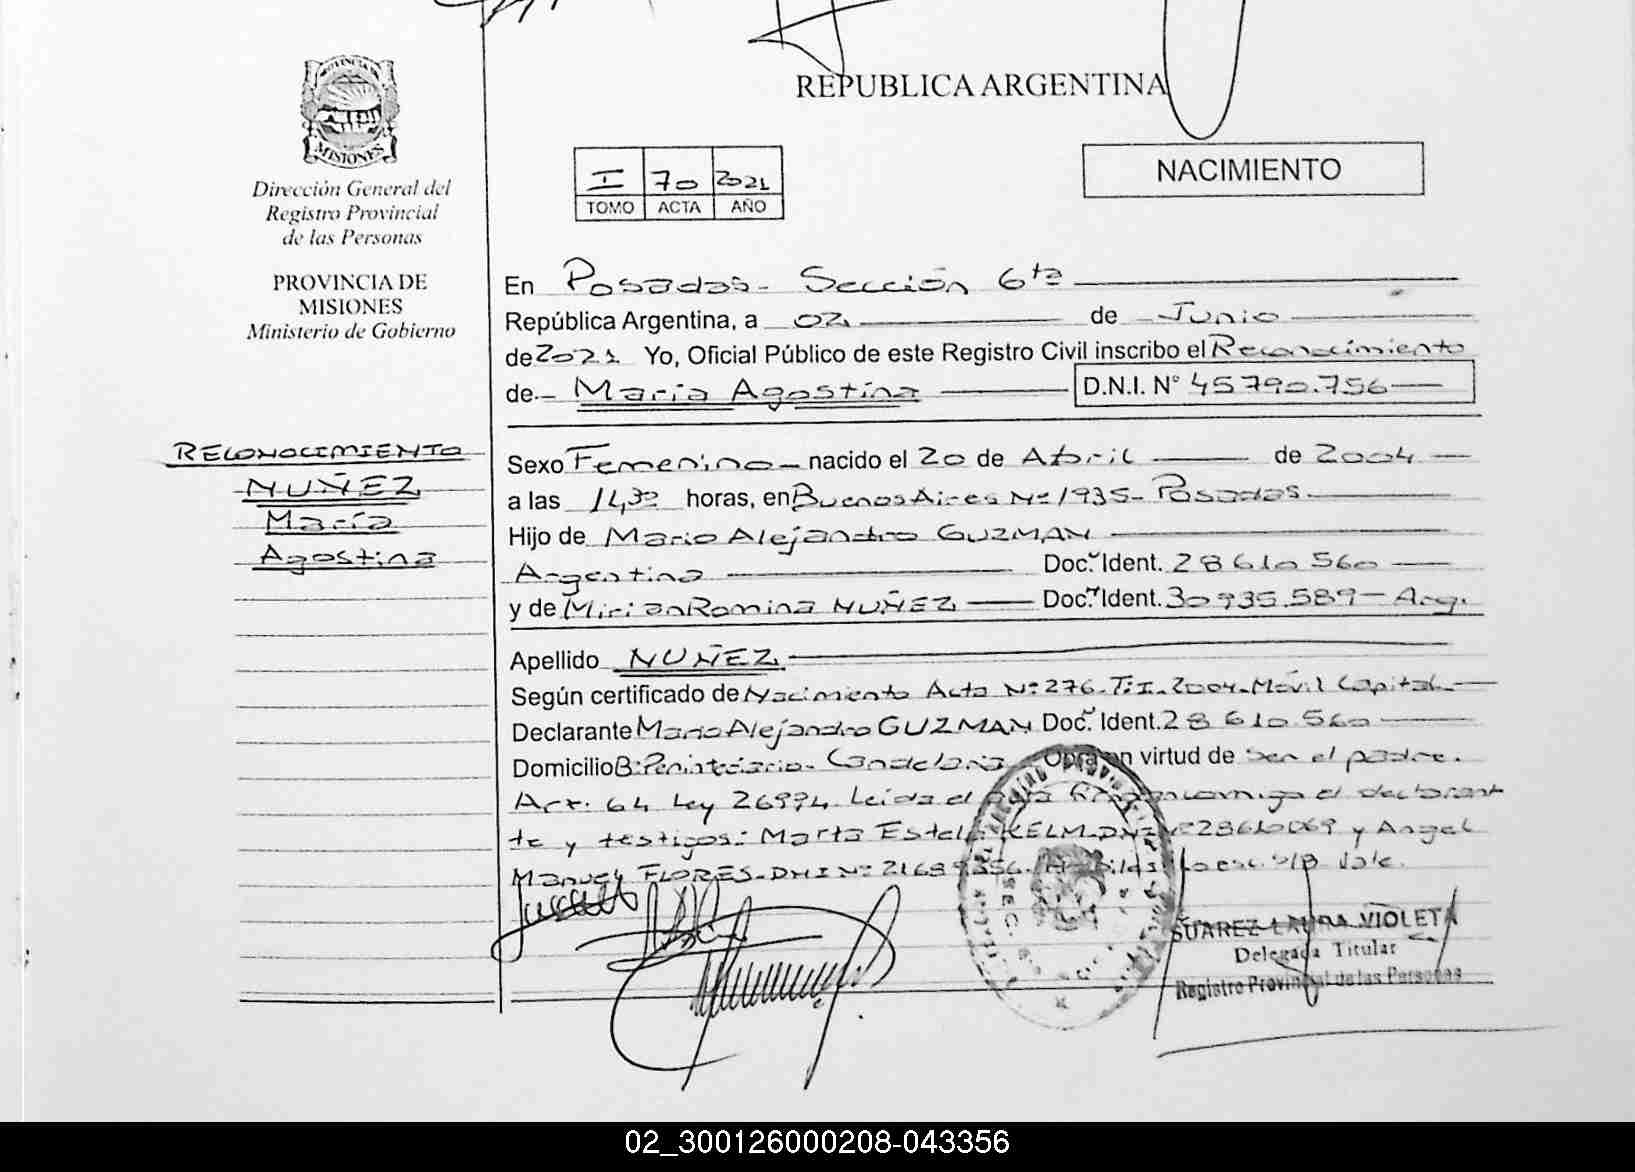 REPUBLICA ARGENTINA
PROVINCIA DE
MISIONES
Dirección General del
Registro Provincial
de las Personas
PROVINCIA DE
MISIONES
Ministerio de Gobierno
I 70 2021
TOMO ACTA AÑO
NACIMIENTO
RECONOCIMIENTO
NUÑEZ
María
Agostina
En Posadas - Sección 6ta
República Argentina, a 02 de Junio
de 2021 Yo, Oficial Público de este Registro Civil inscribo el Reconocimiento
de - María Agostina D.N.I. N° 45790.756
Sexo Femenino - nacido el 20 de Abril de 2004
a las 14,30 horas, en Buenos Aires Nº 1935 - Posadas.
Hijo de Mario Alejandro GUZMAN
Argentina Doc. Ident. 28 610 560
y de Mirian Romina NUÑEZ Doc. Ident. 30 935.589 - Arg.
Apellido NUÑEZ
Según certificado de Nacimiento Acta Nº 276-T:I-2004-Móvil Capital
Declarante Mario Alejandro GUZMAN Doc. Ident. 28 610 560
Domicilio Bº Penitenciario - Candelaria Obra en virtud de ser el padre.
Art. 64 Ley 26994. Leída el acta firman conmigo el declaran
te y testigos: Marta Estela KELM-DNI Nº 28610069 y Angel
Manuel FLORES-DNI Nº vale.
SEC. 6
SUAREZ LAURA VIOLETA
Delegada Titular
Registro Provincial de las Personas
02_300126000208-043356